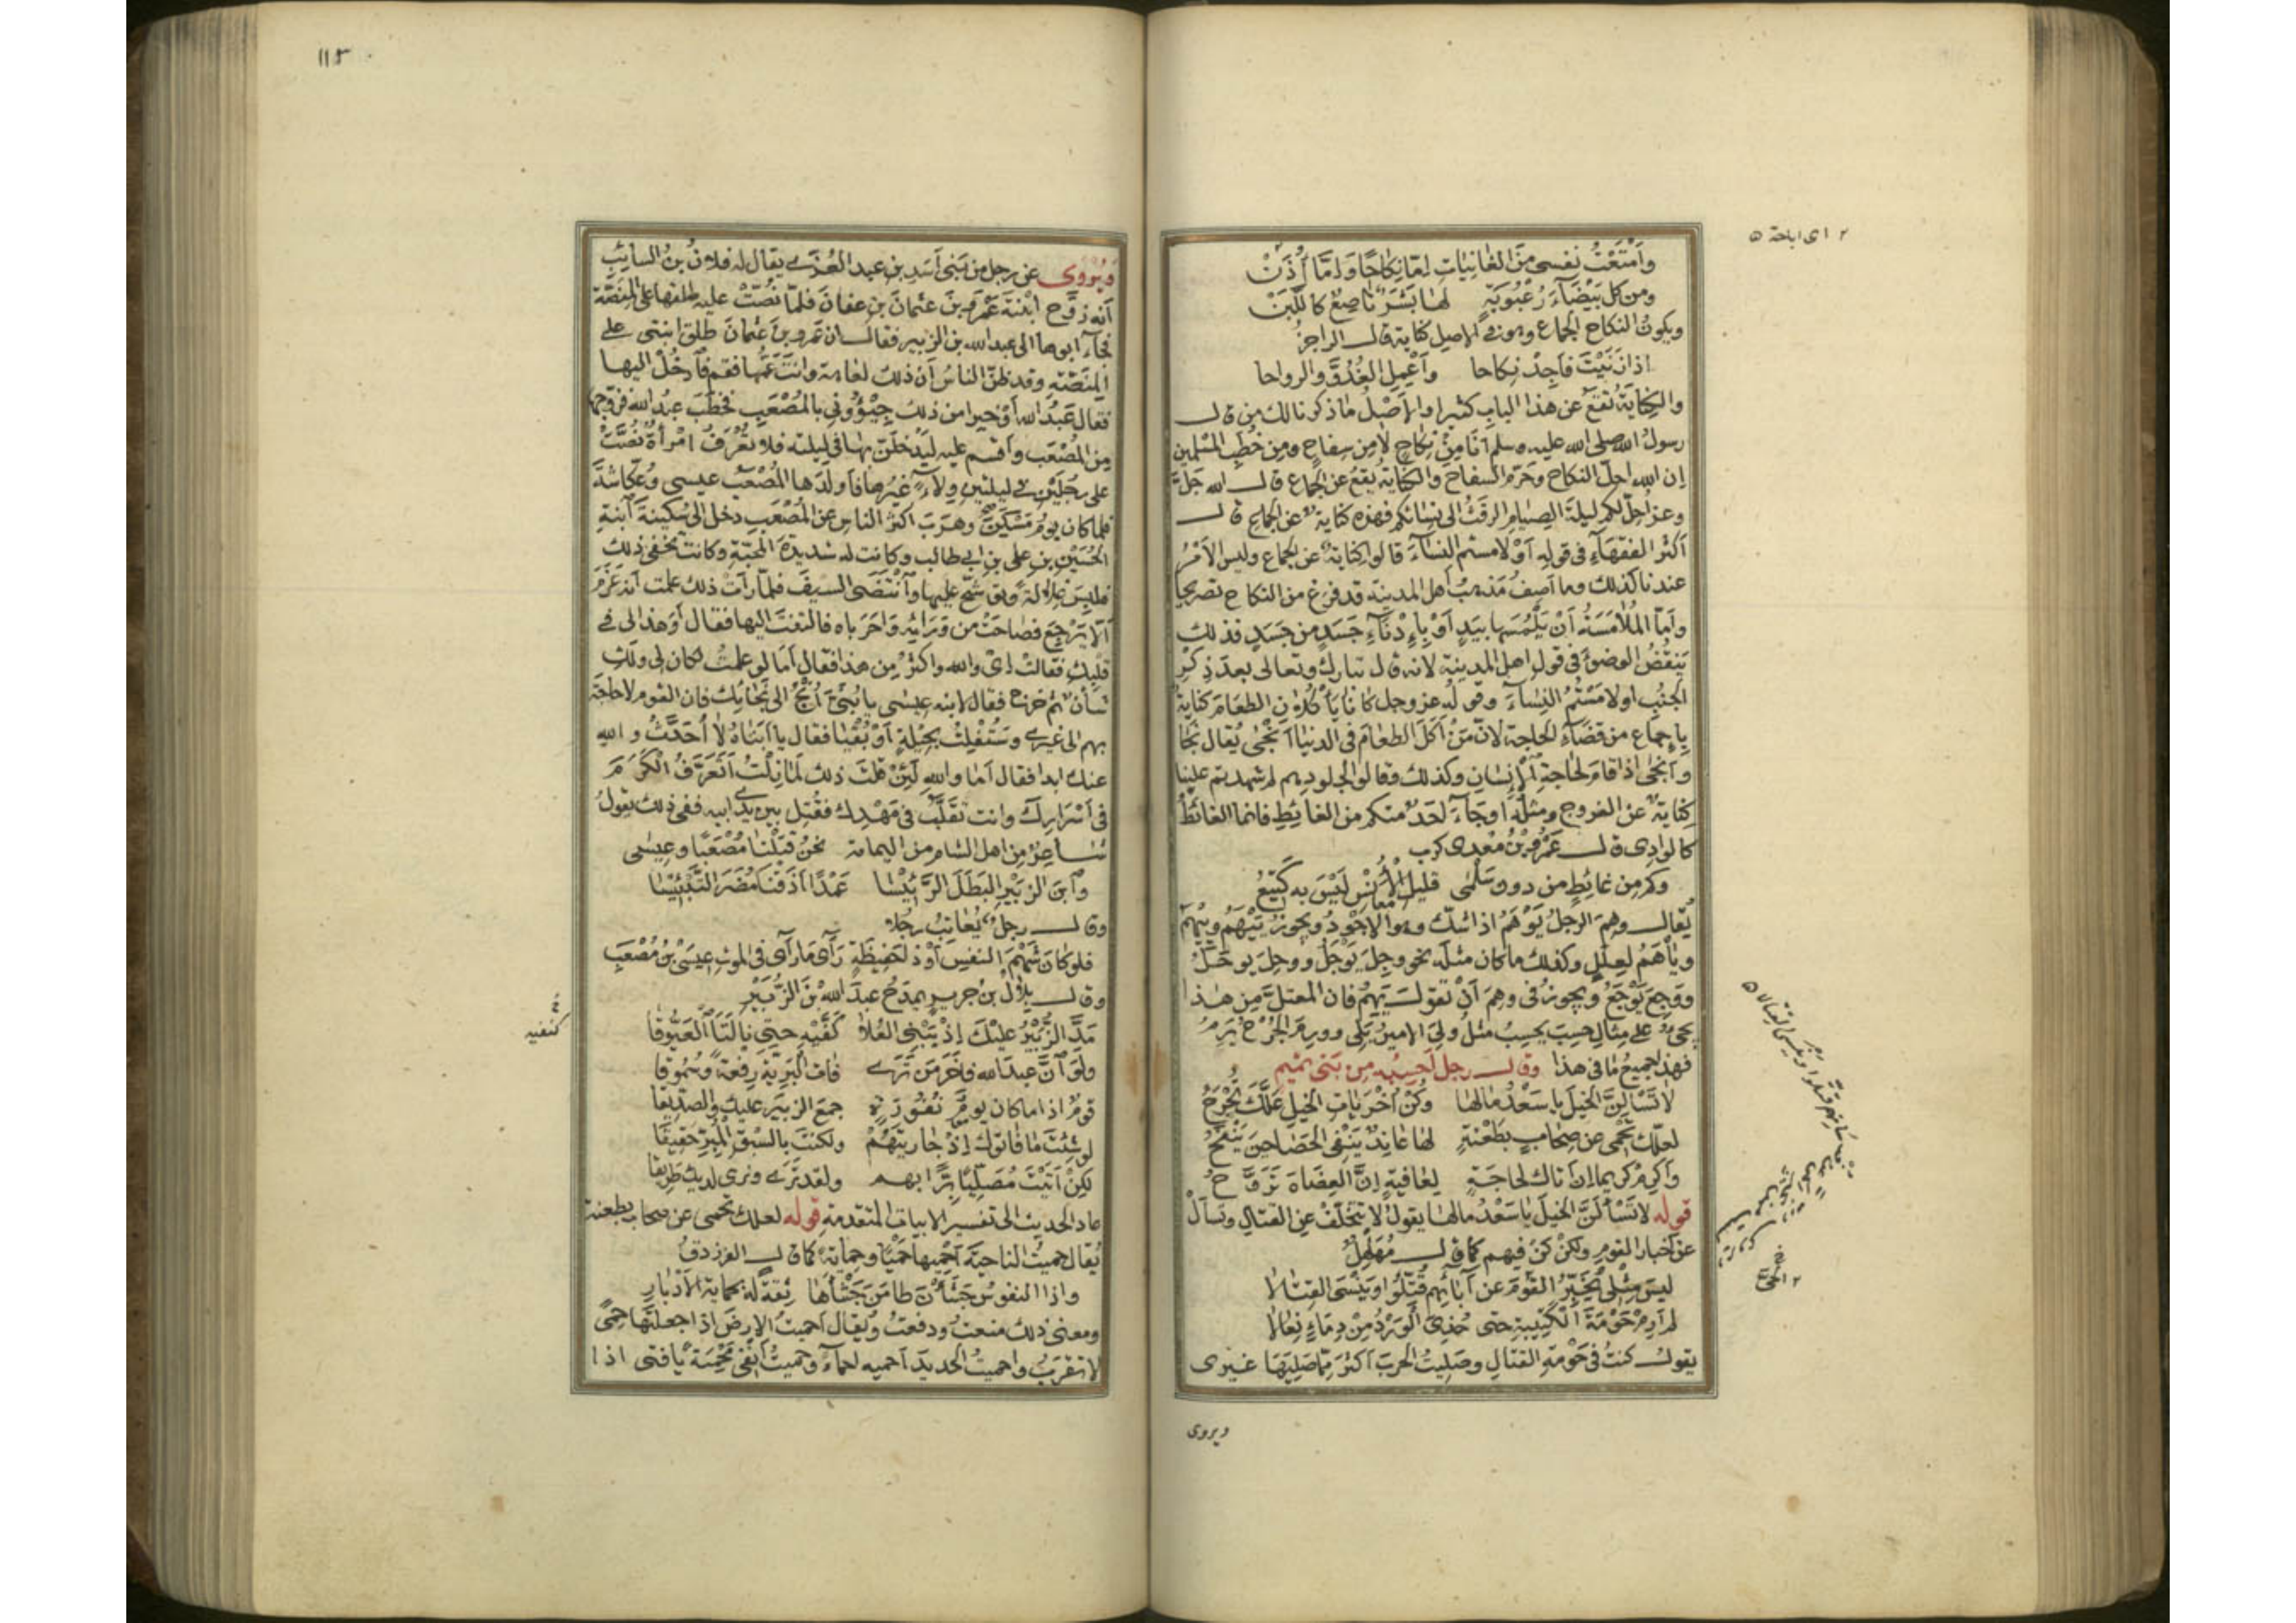 ٢ اى اباحة ٥
وأَمْتَعْتُ نفسى مِنَ الغانِيَاتِ اِمّا نِكاحًا وَاِمّا أُذَنْ
ومن كل بَيْضَآءَ رُعْبُوبَةٍ لها بَشَرٌ ناصِعٌ كاللَّبَنْ
ويكونُ النكاح الجماع وهو فى الاصل كناية قال الراجز
اذا زَنَيْتَ فأَجِدْ نِكاحا وأَعْمِلِ الغُدُوَّ والرواحا
والكِنايَةُ تَقعُ عن هذا البابِ كثيرا والاَصْلُ ماذكرنا لك من قال
رسولُ الله صلى الله عليه وسلم أنا مِنْ نِكاحٍ لا مِن سِفاحٍ ومِن خُطَبِ المسْلِمين
إن الله احلّ النكاح وحَرّم السفاح والكنايةُ يقعُ عن الجماع قال الله جَلَّ
وعز أحِلّ لكم ليلةَ الصِيامِ الرفَثُ الى نِسائكم فهذه كناية عن الجماع قال
أكثرُ الفقهآءِ فى قولِه أوْ لامستم النسآءَ قالوا كِنايةٌ عن الجماع وليس الاَمْرُ
عندنا كذلك وما أصِفُ مَذْهبُ اهل المدينة قد فرغ من النكاح تصريحا
وأمّا المُلامَسَةُ أَنْ يَلْمُسَها بِيَدٍ أوْ بِاِدْنآءِ جَسَدٍ من جَسَدٍ فذلك
يَنقُضُ الوضوءَ فى قول اهل المدينة لانه قال تبارك وتعالى بعدَ ذِكْرِ
الجنُبِ او لامَسْتُمُ النِساءَ وقولُه عز وجل كانا يأْكُلانِ الطعامَ كنايةٌ
باِجماعٍ من قضآءِ الحاجةِ لانّ مَنْ أكَلَ الطعامَ فى الدنيا أَنْجَى يُقال نَجَا
وأنجَى اذا قامَ لحاجةِ الإِنسان وكذلك وقالوا لجلودِهم لم شهدتم علينا
كِنايةٌ عن الفروج ومثلُه او جآءَ احَدٌ منكم من الغائِطِ فانما الغائطُ
كالوادى قال عَمْرُو بْنُ مَعْدى كرب
وكم مِن غائِطٍ من دون سَلْمَى قليلِ الأُنْسِ لَيْسَ به كَتِيْعُ
يُقال وهِمَ الرجلُ يَوْهَمُ اذا شكّ وهو الاجْوَدُ ويجوزُ يَيْهَمُ ويِيْهَمُ
ويَاْهَمُ لِعِلَلٍ وكذلك ما كان مثلَه نحو وجِلَ يَوْجَلُ ووحِلَ يوحَلُ
ووَجِعَ يَوْجَعُ ويجوزُ فى وهِمَ أنْ تقولَ يَهِمُ فان المعتلَّ مِن هذا
يجىءُ على مِثالِ حسِبَ يحسِبُ مثلُ ولِىَ الاميرُ يَلِى وورِمَ الجُرْحُ يَرِمُ
فهذا جميعُ ما فى هذا وقال رجل اَحسِبُه مِن بَنى تميمٍ
لاتَسْألِنَّ الخيلَ ياسَعْدُ مالها وكُنْ أُخْرَيَاتِ الخيلِ عَلَّكَ تُجْرَحُ
لعلّك تَحْمِى عن صِحابٍ بِطَعْنةٍ لها عانِدٌ يَنْفِى الحَصَا حِينَ يَنْفَحُ
وأكرِمْ كريما اِن اتاك لحاجَةٍ لِعافيةٍ إنَّ العِضاهَ تَرَوَّحُ
قوله لاتَسْألَنَّ الخيلَ ياسَعْدُ مالها يقولُ لا تتخلّفْ عن القتالِ وتسألْ
عن أخبارِ القومِ ولكنْ كنْ فيهم كما قال مُهَلْهِلٌ
ليسَ مِثْلى يُخَبِّرُ القَوْمَ عن آبائِهم قُتِّلُوا ويَنْسَى القِتَالا
لم أَرِمْ حَوْمَةَ الكَتِيبةِ حتى حُذِىَ الْوَرْدُ مِنْ دِمَاءٍ نِعالا
يقولُ كنتُ فى حَوْمةِ القتالِ وصَلِيتُ الحربَ اكثرَ مِمّا صَلِيَها غيرى
ويروى
١١٣
ويُرْوى عن رجل من بَنِى أَسَدِ بنِ عبد العُزّى يقال له فلانُ بنُ السائِبِ
أنه زوَّج ابْنتَه عَمْرَو بنَ عثمانَ بنِ عفانَ فلمّا نُصَّتْ عليه طلقها على المنَصَّة
فجآءَ ابوها الى عبد الله بن الزبير فقال ان عَمرو بنَ عثمانَ طلق ابنتى على
المِنَصّةِ وقد ظنّ الناسُ أنّ ذلك لعاهة وانت عَمُّها فقم فادْخُلْ اليها
فقال عَبْدُ الله أوْ خيرا من ذلك جِيْؤُونى بالمُصْعَبِ فخطَبَ عبدُ الله فزوجها
مِن المُصْعَب وأقسم عليه ليَدْخُلَنّ بها فى ليلته فلا تُعْرَفُ امْرأةٌ نُصَّتْ
على رجلَيْنِ فى ليلتين وِلآءً غيرُها فأولَدَها المُصْعَب عيسى وعُكّاشَةَ
فلما كان يومُ مَسْكِنَ وهَرَبَ اكثرُ الناس عن المُصْعَبِ دخل الى سُكينةَ ابنةِ
الحُسَيْنِ بنِ على بن ابى طالب وكانت له شديدةَ المحبّةِ وكانت تخفى ذلك
فلبِسَ غِلالةً وتوشّحَ عليها وانتضَى السيفَ فلمّا رأت ذلك علمت أنه عَزَمَ
ألّا يَرْجِعَ فصاحَتْ من وَرائِه وَاحَرَباه فالتفتَ اليها فقال أوَ هذا لى فى
قلبِكِ فقالت إى والله واكثرُ مِن هذا فقال أمَا لو علمتُ لكان لى ولكِ
شأنٌ ثم خرج فقال لابنه عيسى يا بُنَىَّ اُنْجُ الى نَجائِك فان القوم لاحاجَة
بهم الى غيرى وسَتُفْلِتُ بحِيلةٍ أوْ بُقْيا فقال يا ابَتاهُ لا أُحَدِّثُ والله
عنك ابدا فقال أمَا والله لَئِنْ قلتَ ذلك لَمَا زِلْتُ أتَعَرَّفُ الكَرَمَ
فى أَسْرَارِكَ وانت تقلَّبُ فى مَهْدِك فقُتِل بين يدى ابيه ففى ذلك يقولُ
شاعرٌ مِن اهل الشام من اليمانة نحنُ قتَلْنا مُصْعَبًا وعِيسَى
وَابنَ الزبيْرِ البَطَلَ الرَّئِيْسَا عَمْدًا أذَقْنا مُضَرَ التَّبْئِيْسَا
وقال رجلٌ يُعاتِبُ رجُلا
فلو كان شَهْمَ النفْسِ أوْ ذا حَفِيظَةٍ رَآى ما رَآى فى الموتِ عِيسَىْ بْنُ مُصْعَبِ
وقال بِلالُ بن جريرٍ يمدَحُ عبدَ اللهِ بْنَ الزُّبَيْرِ
مَدَّ الزُّبَيْرُ عليْكَ إذْ يَبْنِى العُلا كَفَّيْهِ حتى نالَتَا العَيُّوقا
ولَوَ انَّ عبدَ الله فاخَرَ مَن تَرَى فاتَ البَرِيّةَ رِفْعةً وسُمُوقا
قَوْمٌ اذا ماكان يومُ نُفُورَةٍ جمَعَ الزبيرَ عليك والصدِّيقا
لو شِئتَ ما فاتوك إذْ جاريتَهُمْ ولكنتَ بالسَّبْقِ المُبِرِّ حَقِيقَا
لكِنْ أتيْتَ مُصَلِّيًا بَرًّا بهم ولقد تَرَى ونَرى لديك طَرِيقا
عاد الحديث الى تفسير الابيات المتقدمة قوله لعلك تحمى عن صحاب بطعنة
يُقال حميتُ الناحيَةَ أَحْمِيها حَمْيًا وحِمايَةً كما قال الفرزدقُ
واذا النفوسُ جَشَأْنَ طامَنَ جَأْشَها ثِقَةً له بحمايةِ الأَدْبارِ
ومعنى ذلك منعتُ ودفعتُ ويُقال أحميتُ الارضَ اذا جعلتَها حِمًى
لا تُقرَبُ واحميتُ الحديدَ أُحميه اِحمآءً وحميتُ أَنْفِى مَحْمِيَةً يا فتى اذا